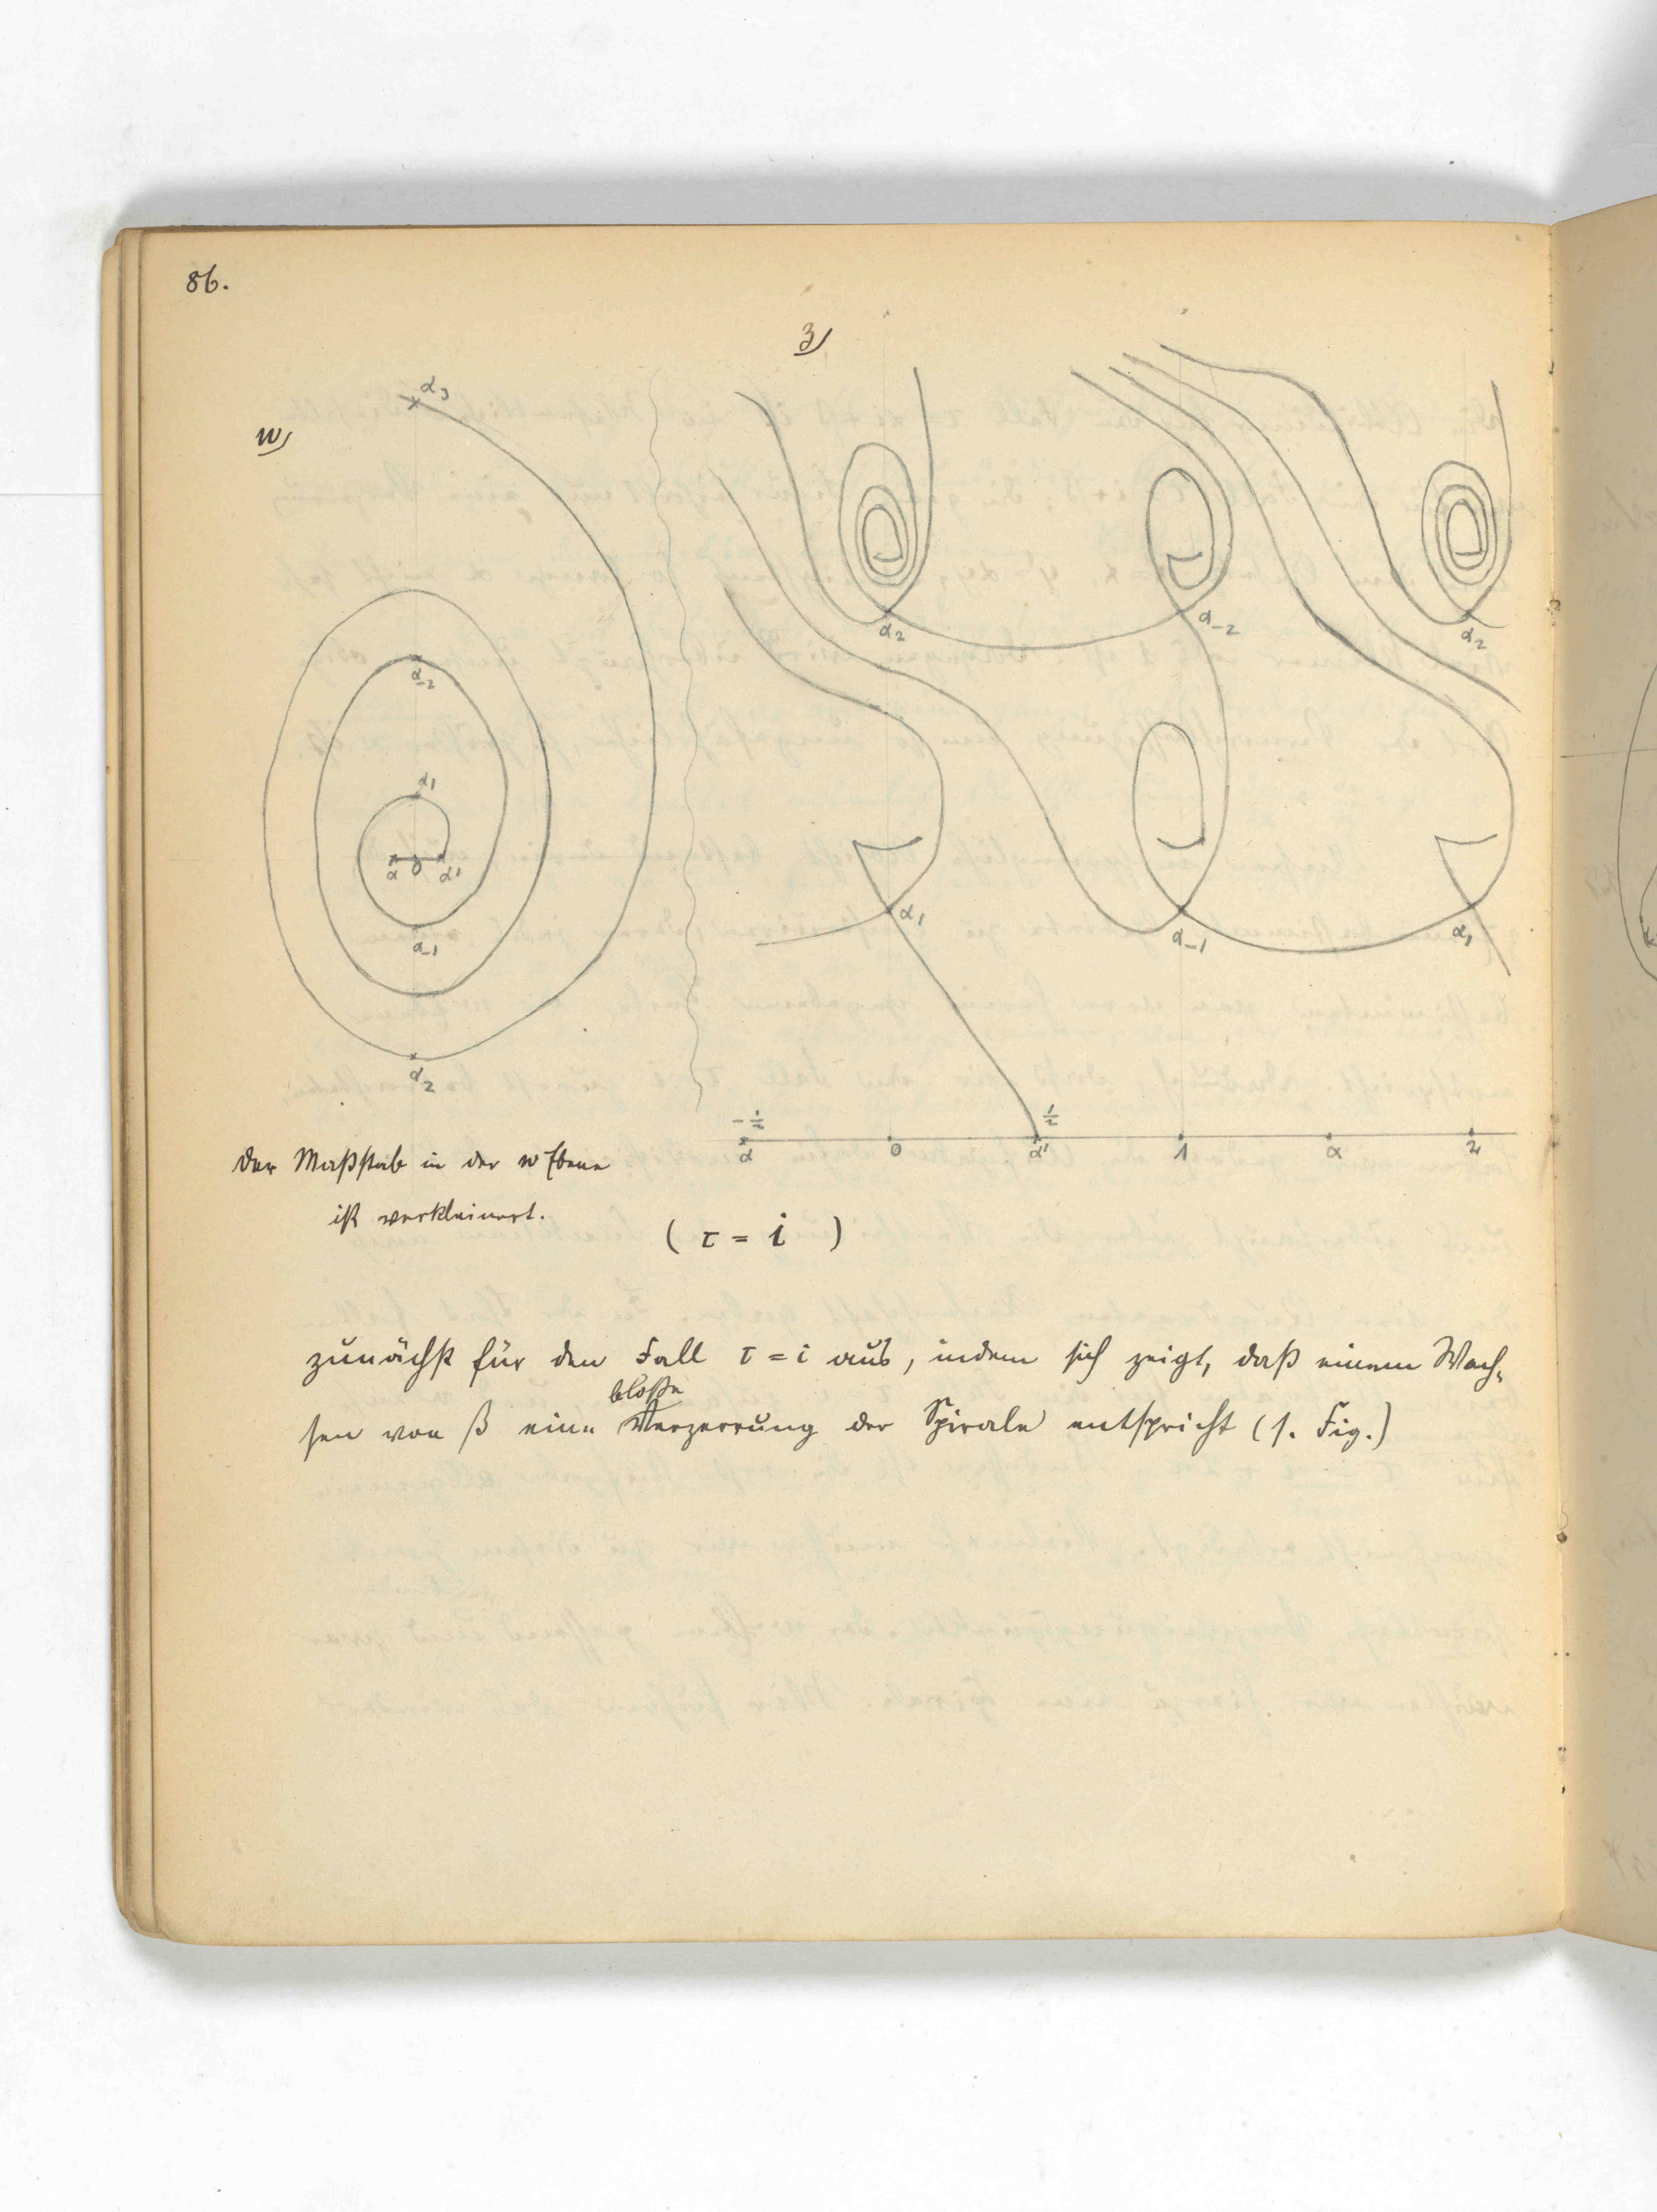 86.
z)
w)
α₃
α₋₂
α₁
α 0 α'
α₋₁
α₂
α₂
α₋₂
α₂
α₁
α₋₁
α₁
-½ ½
α 0 α' 1 α 2
Der Maßstab in der w Ebene
ist verkleinert.
( τ = i )
zunächst für den Fall τ = i aus, indem sich zeigt, daß einem Wach-
bloße
sen von β eine Verzerrung der Spirale entspricht (s. Fig.)